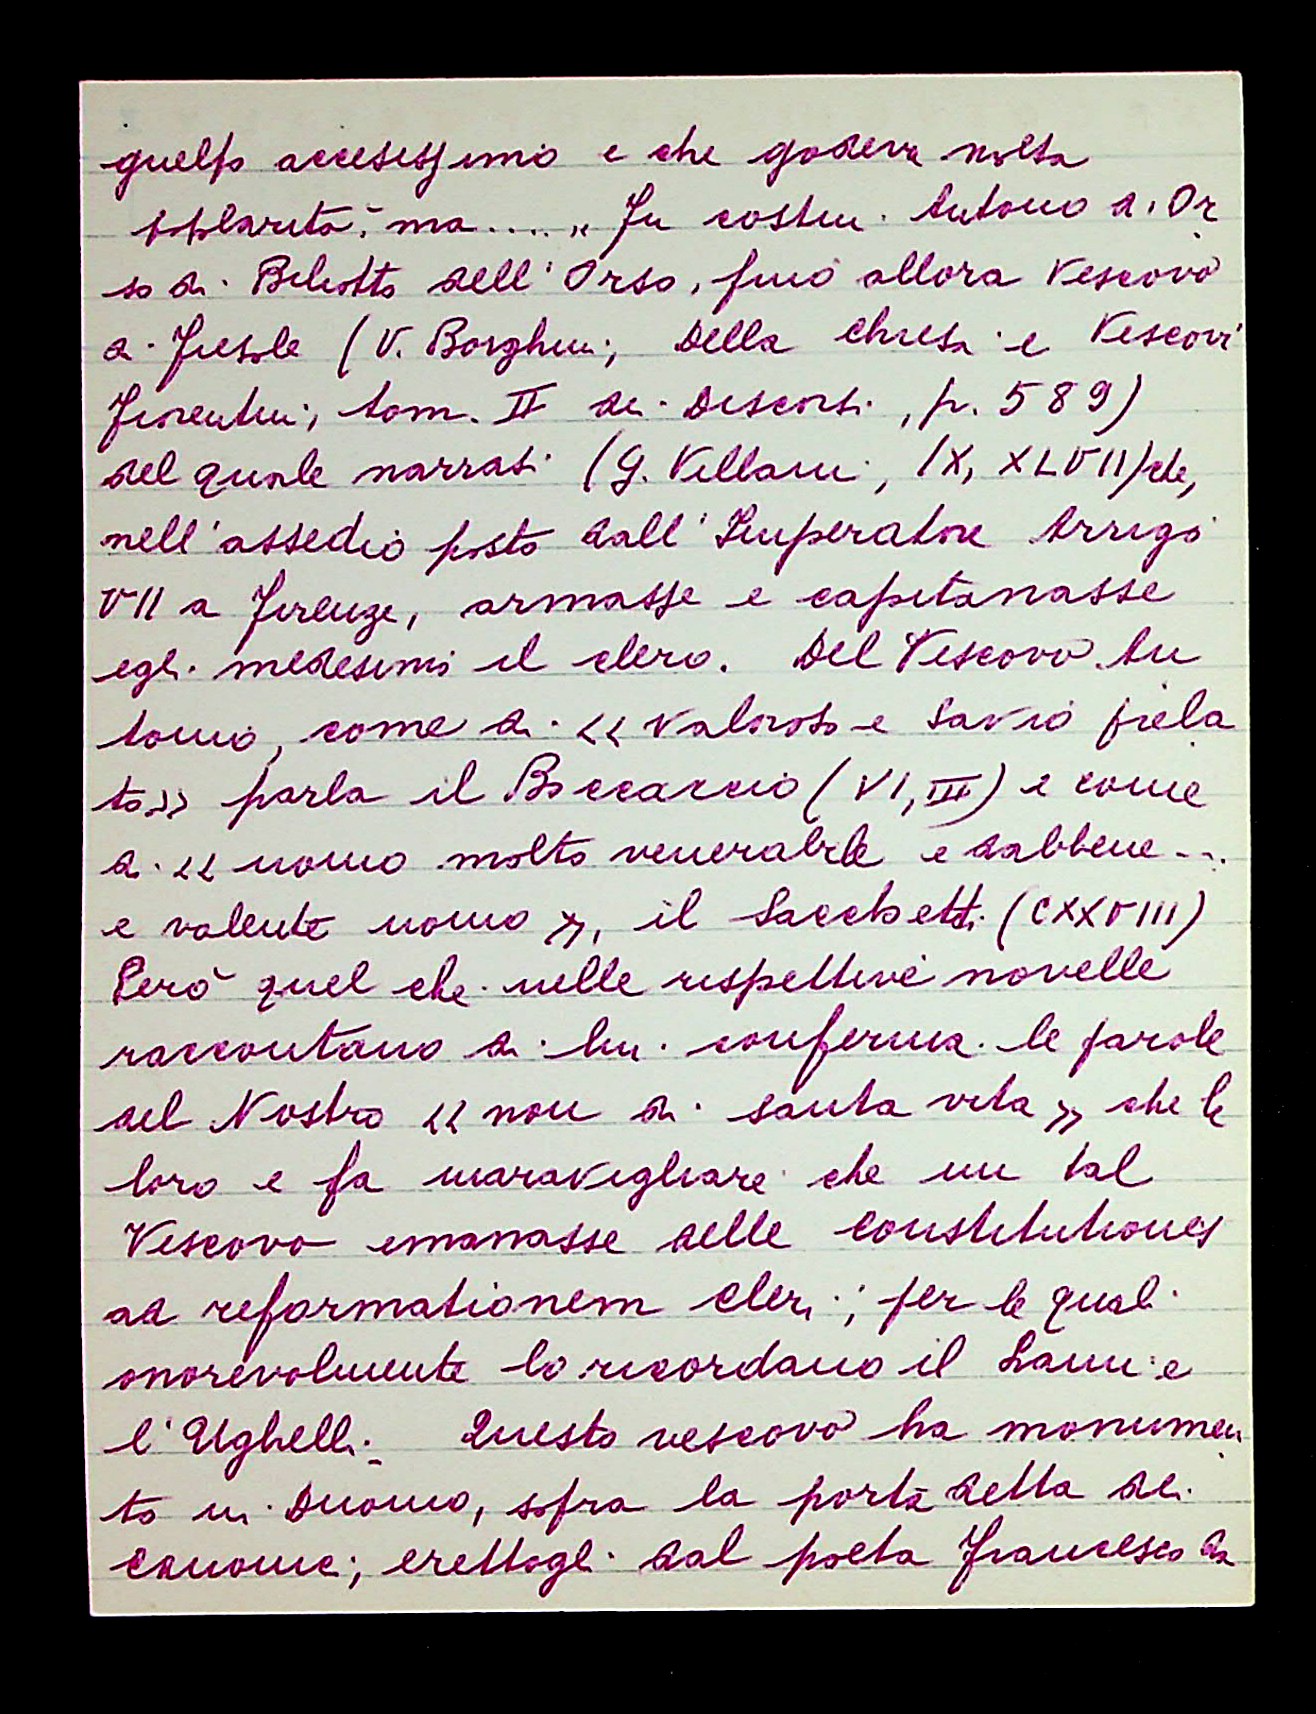 guelfo accesissimo e che godeva molta
popolarità, ma.... „ Fu costui Antonio d'Or
so di Biliotto dell'Orso, fino allora Vescovo
di Fiesole (V. Borghini, Della Chiesa e Vescovi
Fiorentini, tom. II dei Discorsi, p. 589)
del quale narrasi (G. Villani, IX, XLVII) che,
nell'assedio posto dall'Imperatore Arrigo
VII a Firenze, armasse e capitanasse
egli medesimo il clero. Del Vescovo An
tonio, come di << valoroso e savio prela
to >> parla il Boccaccio (VI, III) e come
di << uomo molto venerabile e dabbene...
e valente uomo >>, il Sacchetti (CXXVIII)
Però quel che nelle rispettive novelle
raccontano di lui conferma le parole
del Nostro << non di santa vita >> che le
loro e fa maravigliare che un tal
Vescovo emanasse delle Constitutiones
ad reformationem cleri; per le quali
onorevolmente lo ricordano il Lami e
l'Ughelli. Questo vescovo ha monumen
to in Duomo, sopra la porta detta dei
canonici, erettogli dal poeta Francesco da